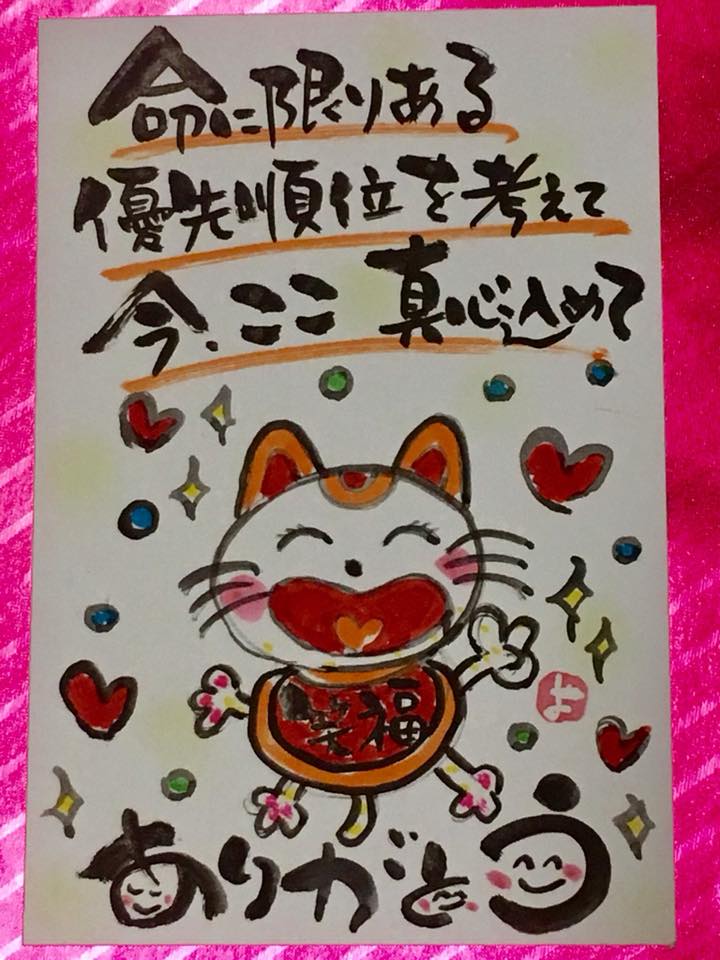 命に限りある
優先順位を考えて
今、ここ 真心込めて
笑福
よ
ありがとう